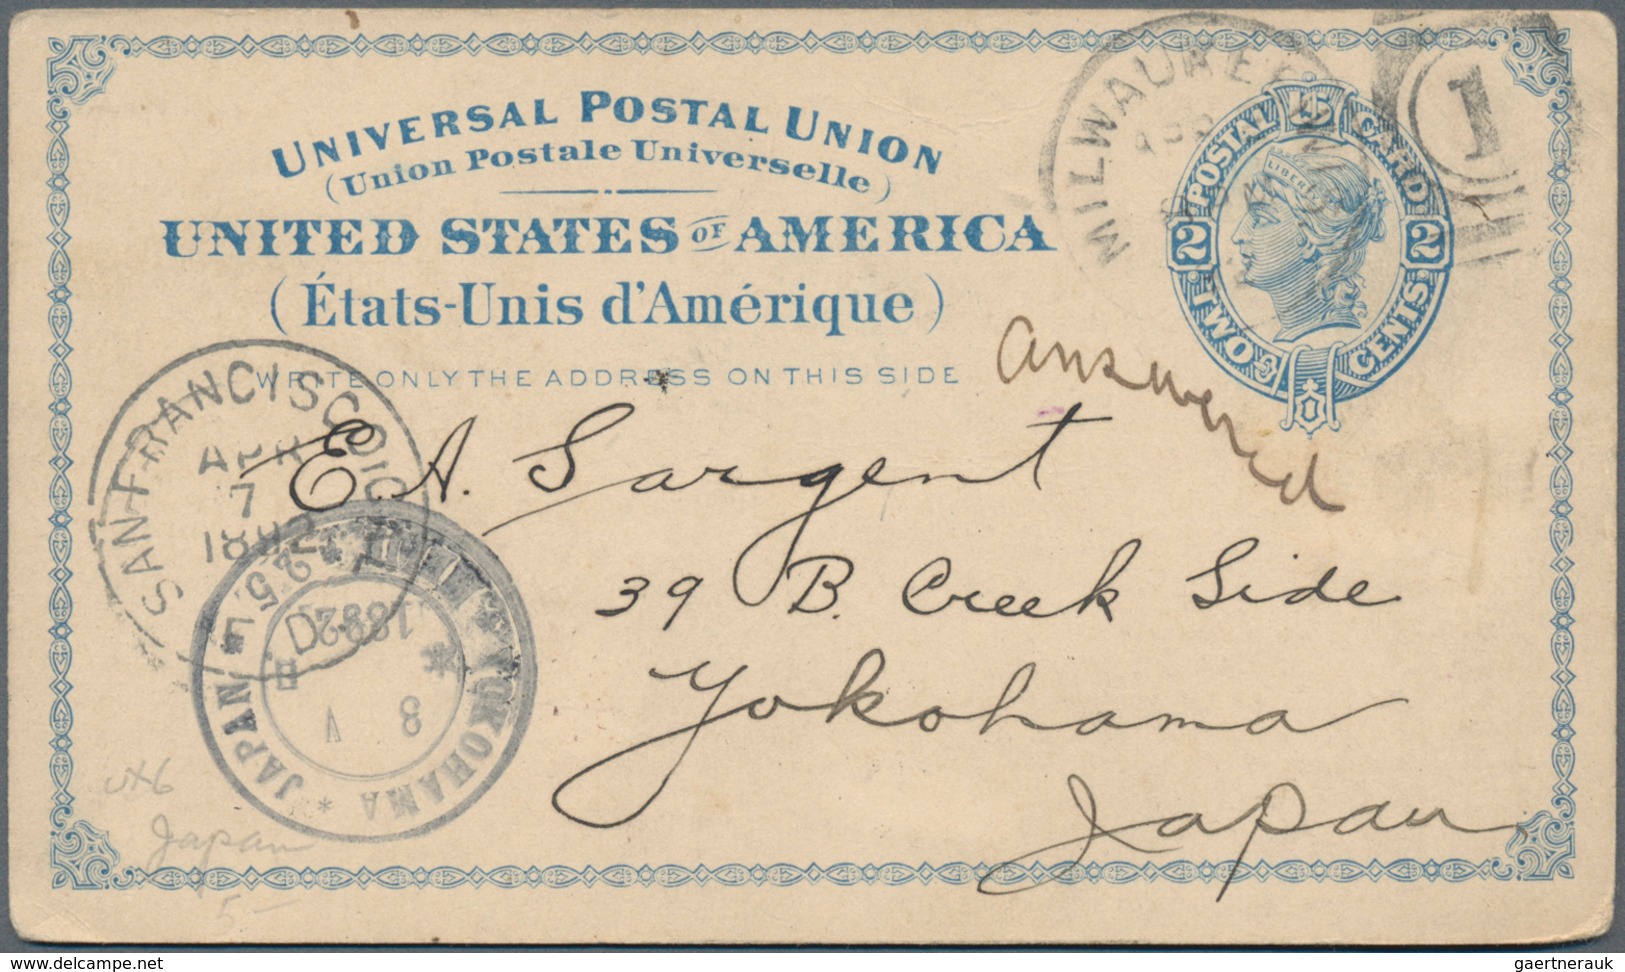 UNIVERSAL POSTAL UNION
(Union Postale Universelle)
UNITED STATES OF AMERICA
(États-Unis d'Amérique)
WRITE ONLY THE ADDRESS ON THIS SIDE
MILWAUKEE
1
U S POSTAL CARD
LIBERTY
2 2
TWO CENTS
answered
SAN FRANCISCO
APR
7
1892
E. A. Sargent
39 B. Creek Side
Yokohama
Japan
YOKOHAMA * JAPAN
1892
8 V
UX6
Japan
5-
delcampe.net
gaertnerauk